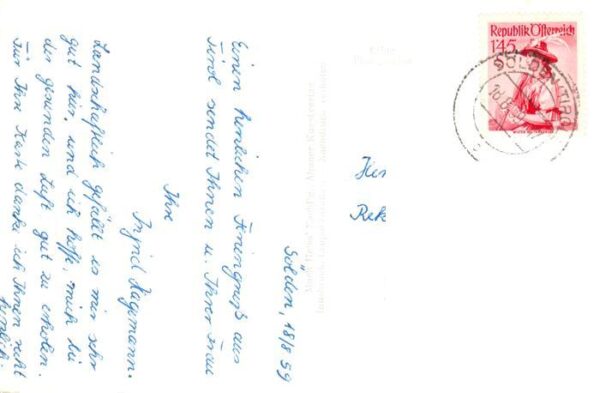 Sölden, 18/8 59
Einen herzlichen Feriengruß aus
Tirol sendet Ihnen u. Ihrer Frau
Ihre
Ingrid Hagemann.
Landschaftlich gefällt es mir sehr
gut hier, und ich hoffe, mich bei
der gesunden Luft gut zu erholen.
Für Ihre Karte danke ich Ihnen recht
herzlich.
Rek
Republik Österreich
1'45
SÖLDEN TIROL